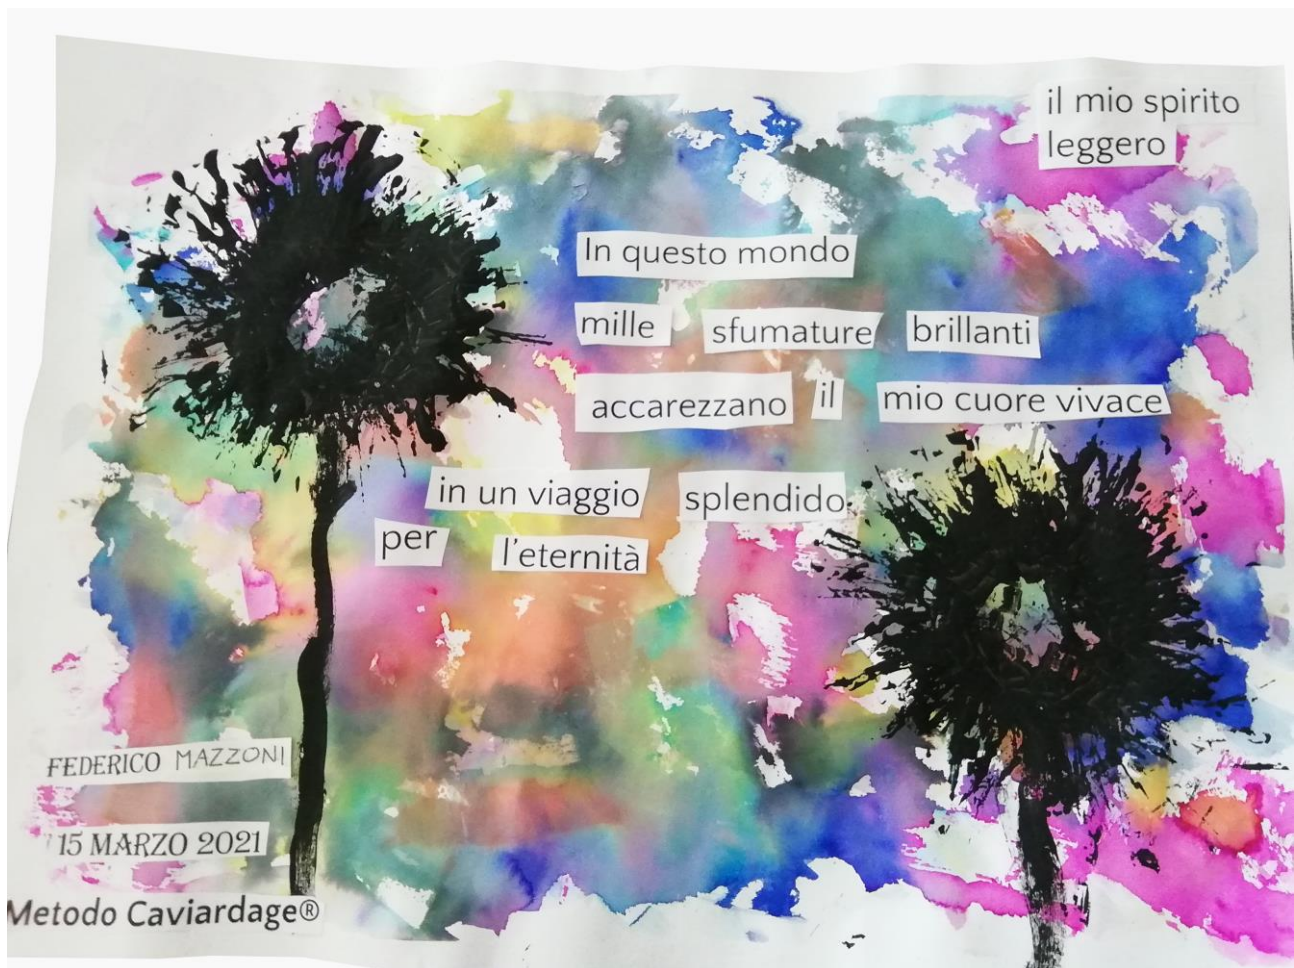 il mio spirito
leggero
In questo mondo
mille sfumature brillanti
accarezzano il mio cuore vivace
in un viaggio splendido
per l'eternità
FEDERICO MAZZONI
15 MARZO 2021
Metodo Caviardage®